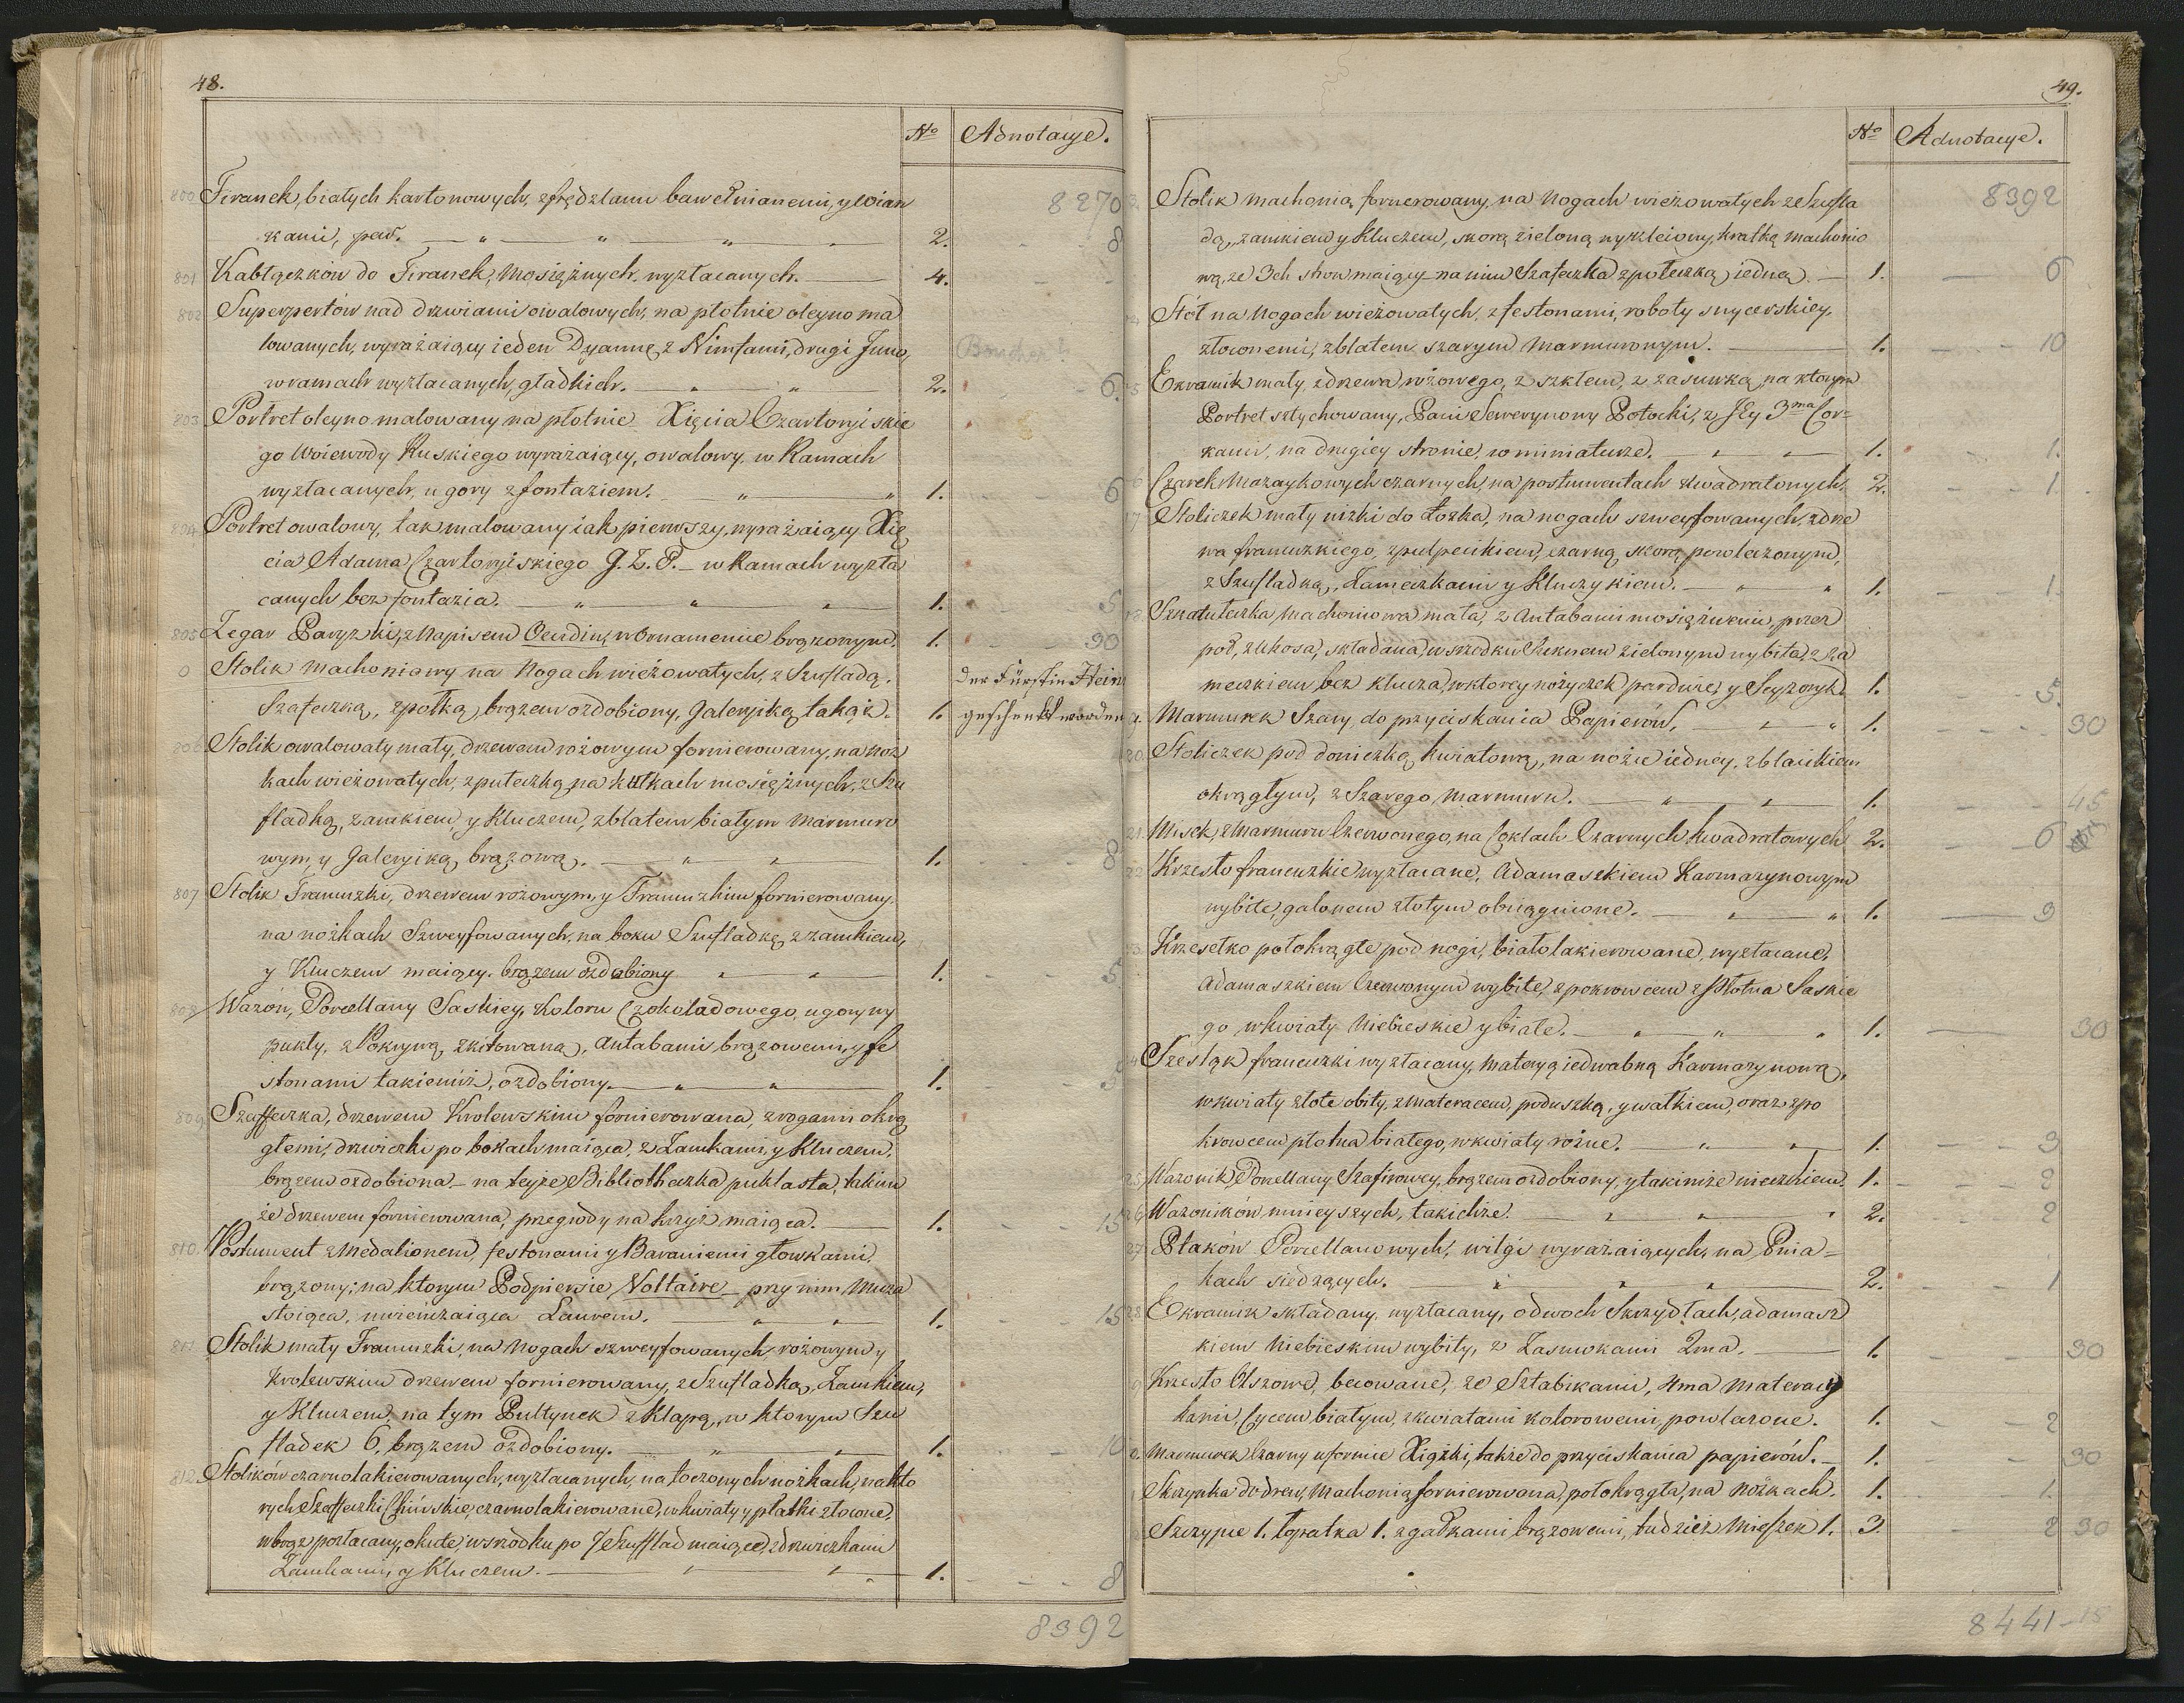 48.
No Adnotacye.
8270
800 Firanek, białych kartonowych, z frędzlami bawełnianemi, y wian
kami, par. 2. 8
801 Kabłączków do Firanek, Mosiężnych, wyzłacanych. 4.
802 Superpertów nad drzwiami owalowych, na płotnie oleyno ma
lowanych, wyrażaiący ieden Dyannę z Nimfami, drugi Juno, Boucher?
w ramach wyzłacanych, gładkich. 2. 6.
803 Portret oleyno malowany na płotnie Xięcia Czartoryiskie
go Woiewody Ruskiego wyrażaiący, owalowy, w Ramach
wyzłacanych, u gory z fontaziem. 1. 6
804 Portret owalowy, tak malowany iak pierwszy, wyrażaiący Xię
cia Adama Czartoryiskiego G. Z. P. w Ramach wyzła
canych bez fontazia. 1. 5
805 Zegar Paryzki, z Napisem Oeurdin, w Ornamencie brązowym. 1. 90
0 Stolik Machoniowy na Nogach wieżowatych, z Szufladą. der Fürstin Hein
Szafeczką, z połką, brązem ozdobiony, Galeryiką takąż. 1. geschenkt worden
806 Stolik owalowaty mały, drzewem rożowym fornierowany, na noż
kach wieżowatych, z puteczką, na kułkach mosiężnych, z Szu
fladką, zamkiem, y Kluczem, z blatem białym Marmuro
wym, y Galeryiką brązową. 1. 8
807 Stolik Francuzki, drzewem rożowym, y Francuzkim fornierowany.
na nożkach Szweyfowanych, na boku Szufladkę z zamkiem,
y Kluczem maiący. brązem ozdobiony 1. 5
808 Wazon, Porcellany Saskiey, Koloru Czokoladowego, u gory wy
pukły, z Pokrywą zkitowaną, Antabami brązowemi, y fe
stonami takiemiż, ozdobiony. 1. 5
809 Szaffeczka, drzewem Krolewskim fornierowana, z rogami okrą
głemi, drzwiczki po bokach maiąca, z Zamkami, y Kluczem,
brązem ozdobiona. na teyże Bibliotheczka pukłasta, takim
że drzewem fornierowana, przegrody na krzyż maiąca. 1. 15
810. Postument z Medalionem, festonami y Baraniemi głowkami,
brązowy; na ktorym Podpiersie Voltaire przy nim Muza
stoiąca, uwieńczaiąca Laurem. 1. 15
811 Stolik mały Francuzki, na Nogach szweyfowanych, rożowym y
Krolewskim drzewem fornierowany, z Szufladką, Zamkiem,
y Kluczem, na tym Pultynek z Klapą, w ktorym Szu
fladek 6. brązem ozdobiony. 1. 10
812. Stolików czarno lakierowanych, wyzłacanych, na toczonych nożkach, na kto
rych Szaffeczki Chińskie, czarno lakierowane, w kwiaty y płatki złocone,
w brąz pozłacany, okute, w srzodku po 7 Szufflad maiące, z drzwiczkami
Zamkami, y Kluczem. 1. 8
8392
49.
No Adnotacye.
8392
Stolik machonią fornerowany, na Nogach wieżowatych ze Szufla
dą, zamkiem y Kluczem, skorą zieloną wykleiony, kratką machonio
wą, ze 3ch stron maiący, na nim Szafeczka z połeczką iedną. 1. 6
Stół na Nogach wieżowatych, z festonami, roboty snycerskiey,
złoconemi, z blatem szarym Marmurowym. 1. 10
Ekranik mały, z drzewa rożowego, z szkłem, z zasuwką, na ktorym
Portret sztychowany, Pani Sewerynowy Potocki, z Jey 3ma Cor=
kami, na drugiey stronie, w miniaturze. 1. 1.
Czarek Mozaykowych czarnych, na postumentach kwadratowych. 2. 1.
Stoliczek mały nizki do Łożka, na nogach szweyfowanych, z drze
wa francuzkiego, z pulpecikiem, czarną skorą powleczonym,
z Szufladką, Zameczkami y Kluczykiem. 1. 1.
Szkatułeczka Machoniowa mała, z Antabami mosiężnemi, przez
poł, z ukosa, składana, w srzodku Suknem zielonym wybita, z za
meczkiem bez klucza, w ktorey nożyczek par dwie, y Scyzoryk 1. 5.
Marmurek Szary, do przyciskania Papierów, 1. 30
20. Stoliczek pod doniczkę kwiatową, na nożce iedney, z blacikiem
okrągłym, z Szarego Marmuru. 1. 45
21. Misek, z Marmuru Czerwonego, na Cokłach Czarnych kwadratowych 2. 6
22 Krzesło francuzkie wyzłacane, Adamaszkiem Karmazynowym
wybite, galonem złotym obciągnione. 1. 9
Krzesełko połokrągłe pod nogi, biało lakierowane, wyzłacane,
Adamaszkiem Czerwonym wybite, z pokrowcem z Płotna Saskie
go w kwiaty Niebieskie y białe. 1. 30
Szesląk francuzki wyzłacany, materyą iedwabną Karmazynową,
w kwiaty złote obity, z materacem, poduszką, y wałkiem, oraz z po
krowcem płotna białego, w kwiaty rożne. 1. 9
25 Wazonik Porcellany Szafirowey, brązem ozdobiony, y takimże wieczkiem. 1. 2
26 Wazoników, mnieyszych, takichże. 2. 2
27 Ptaków Porcellanowych, wilgi wyrażaiących, na Pnia=
kach siedzących. 2. 1
28 Ekranik składany, wyzłacany, o dwoch Skrzydłach, adamasz
kiem Niebieskim wybity, z Zasuwkami 2ma. 1. 30
Krzesło Olszowe, becowane, ze Sztabikami, 4ma Materacy
kami, Cycem białym, z kwiatami kolorowemi, powleczone. 1. 2
Marmurek Czarny w formie Xiążki, także do przyciskania papierów. 1. 30
Skrzynka do drew, Machonią fornierowana, połokrągła, na Nóżkach. 1. 1.
Szczypce 1. Łopatka 1. z gałkami brązowemi, tudzież Mieszek 1. 3. 2 30
8441-15